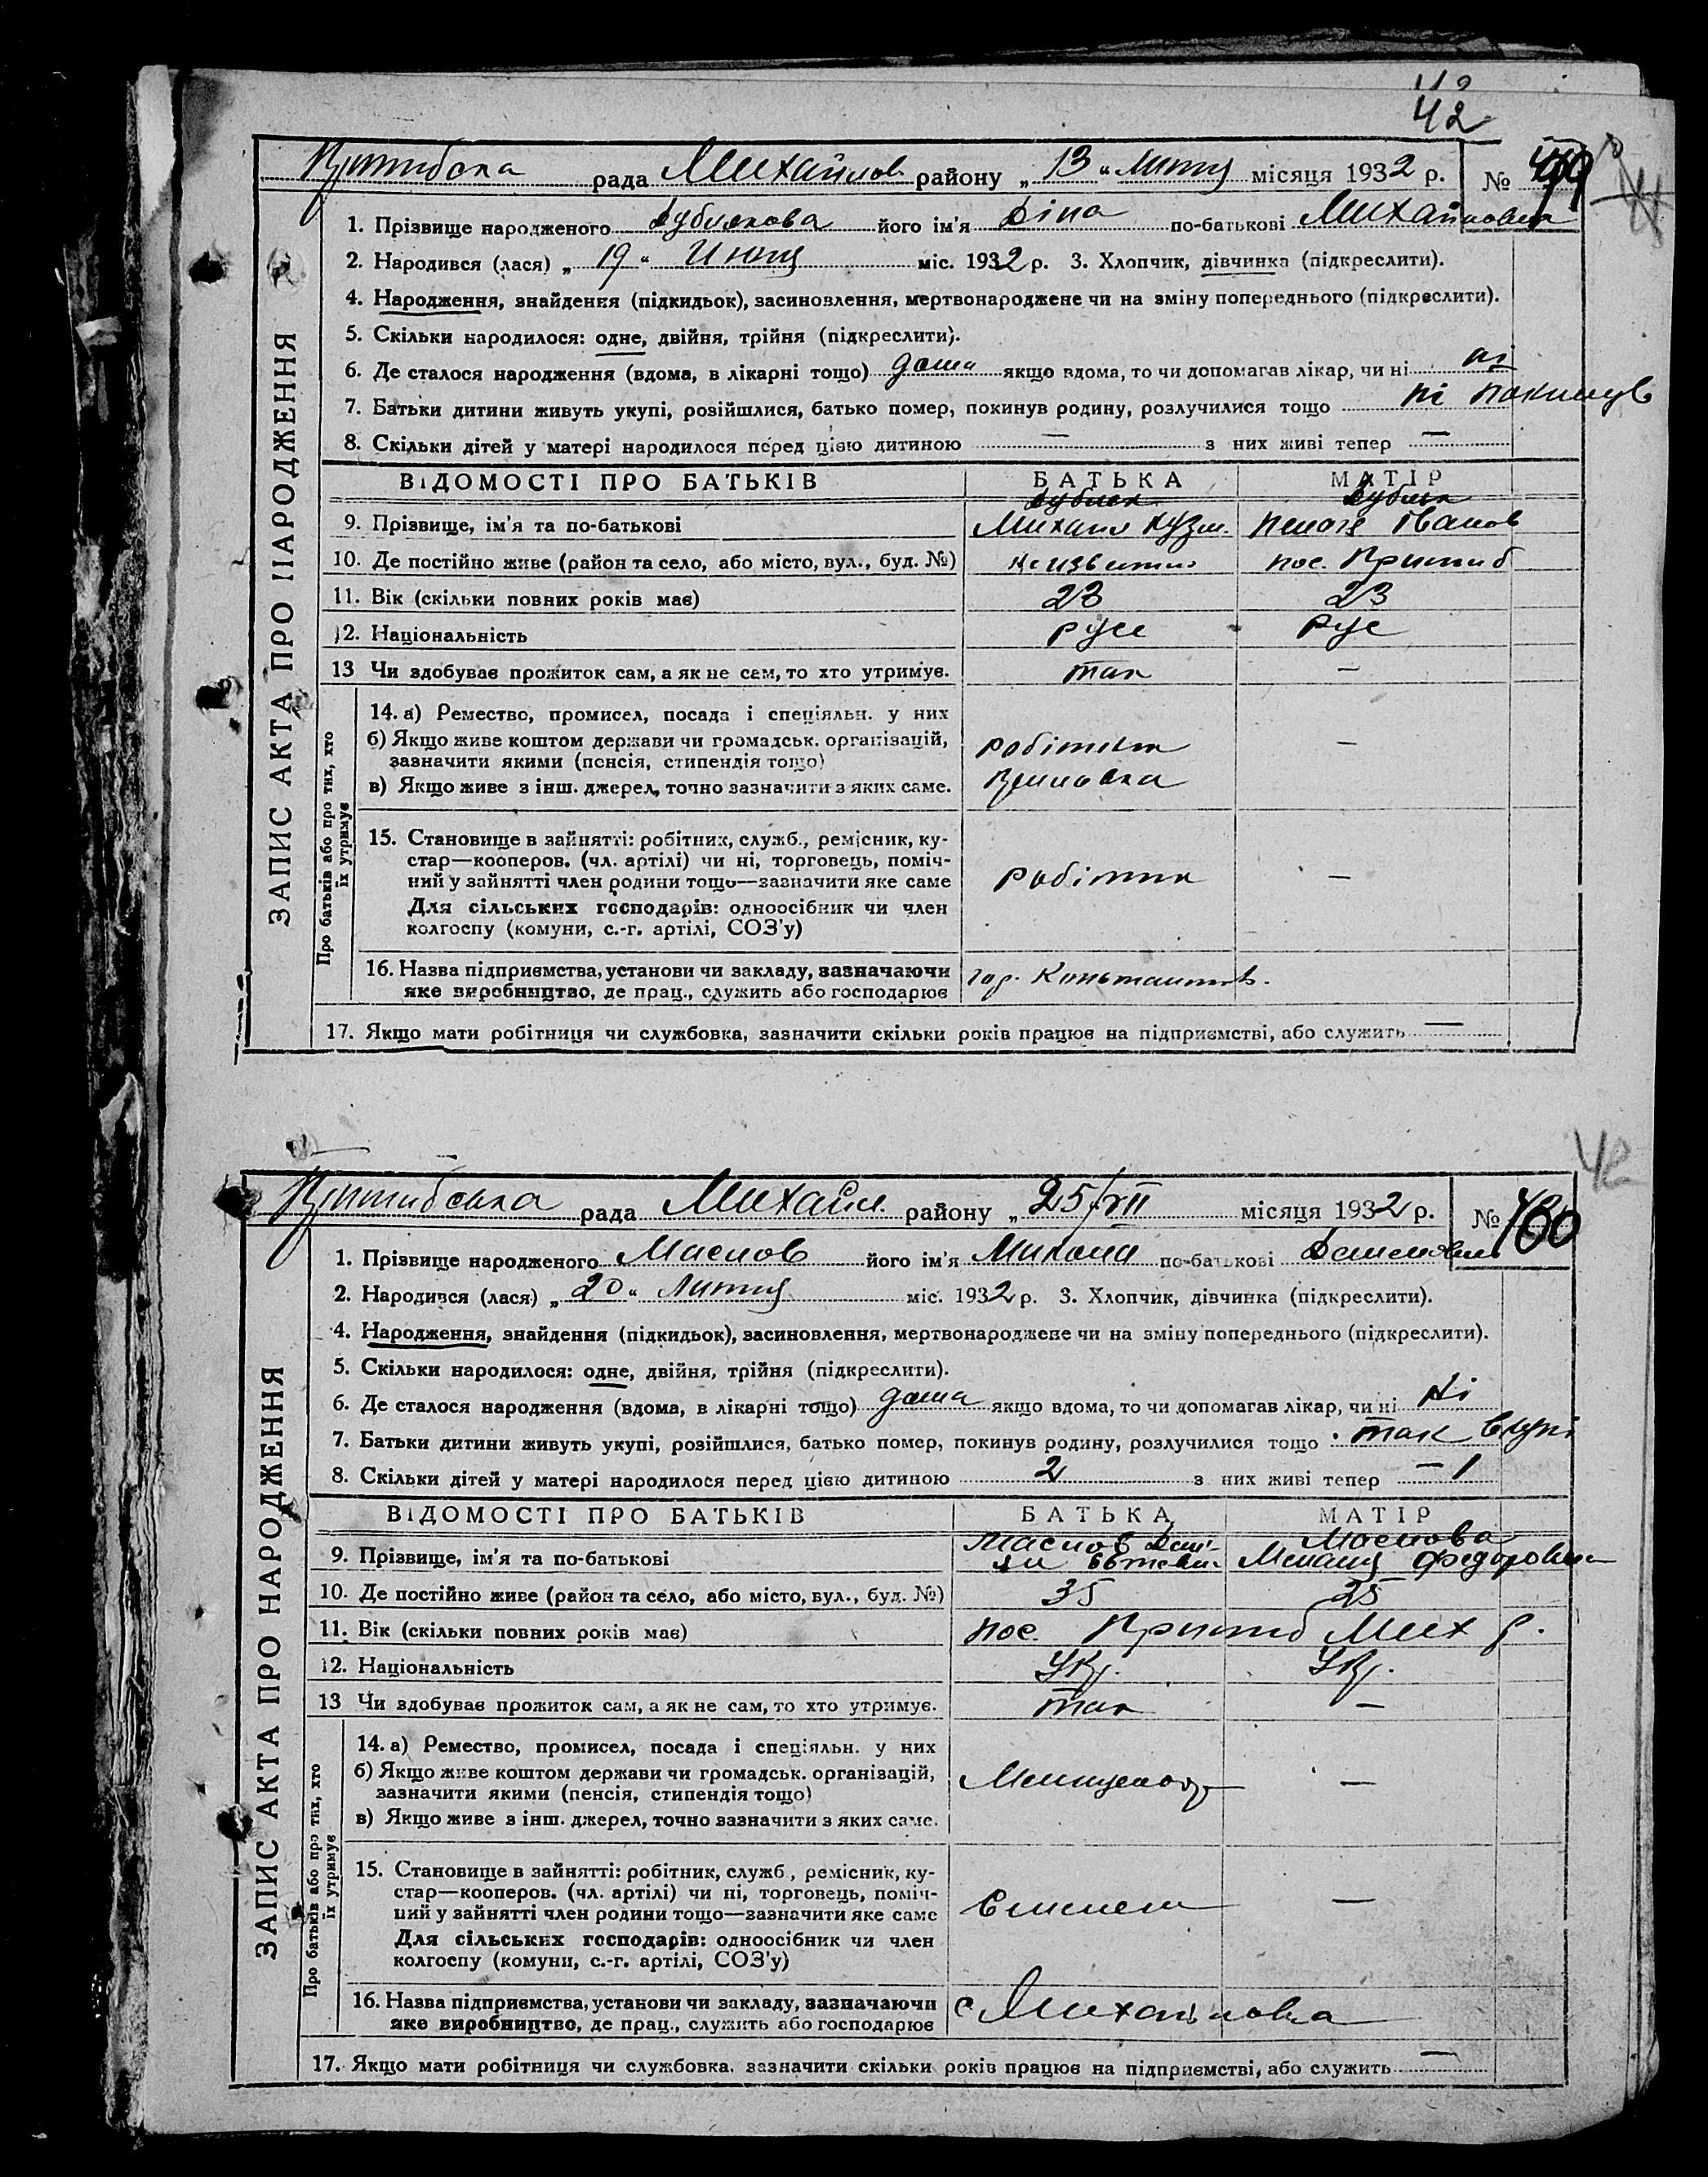 42
рада Михайлов району „ 13 " липня місяця 1932 р. №
1. Прізвище народженого його ім'я Діна по-батькові Михайловна
2. Народився (лася) „ 19 " Июня міс. 1932 р. 3. Хлопчик, дівчинка (підкреслити).
4. Народження, знайдення (підкидьок), засиновлення, мертвонароджене чи на зміну попереднього (підкреслити).
5. Скільки народилося: одне, двійня, трійня (підкреслити).
6. Де сталося народження (вдома, в лікарні тощо) дома якщо вдома, то чи допомагав лікар, чи ні ні
7. Батьки дитини живуть укупі, розійшлися, батько помер, покинув родину, розлучилися тощо ні покинув
8. Скільки дітей у матері народилося перед цією дитиною — з них живі тепер —
ЗАПИС АКТА ПРО НАРОДЖЕННЯ
ВІДОМОСТІ ПРО БАТЬКІВ БАТЬКА МАТІР
9. Прізвище, ім'я та по-батькові Михаил Кузм. Іванов
10. Де постійно живе (район та село, або місто, вул., буд. №) пос. Пришиб
11. Вік (скільки повних років має) 23 23
12. Національність русс рус
13 Чи здобуває прожиток сам, а як не сам, то хто утримує. так —
Про батьків або про тих, хто їх утримує
14. а) Ремество, промисел, посада і спеціяльн. у них
б) Якщо живе коштом держави чи громадськ. організацій, робітник —
зазначити якими (пенсія, стипендія тощо)
в) Якщо живе з інш. джерел, точно зазначити з яких саме.
15. Становище в зайнятті: робітник, служб., ремісник, ку-
стар—кооперов. (чл. артілі) чи ні, торговець, поміч-
ний у зайнятті член родини тощо—зазначити яке саме робітник —
Для сільських господарів: одноосібник чи член
колгоспу (комуни, с.-г. артілі, СОЗ'у)
16. Назва підприємства, установи чи закладу, зазначаючи
яке виробництво, де прац., служить або господарює гор.
17. Якщо мати робітниця чи службовка, зазначити скільки років працює на підприємстві, або служить —
42
Пришибська рада Михайл. району „ 25/VII місяця 1932 р. № 100
1. Прізвище народженого Маслов його ім'я Микола по-батькові
2. Народився (лася) „ 20 " липня міс. 1932 р. 3. Хлопчик, дівчинка (підкреслити).
4. Народження, знайдення (підкидьок), засиновлення, мертвонароджене чи на зміну попереднього (підкреслити).
5. Скільки народилося: одне, двійня, трійня (підкреслити).
6. Де сталося народження (вдома, в лікарні тощо) дома якщо вдома, то чи допомагав лікар, чи ні ні
7. Батьки дитини живуть укупі, розійшлися, батько помер, покинув родину, розлучилися тощо так вкупі
8. Скільки дітей у матері народилося перед цією дитиною 2 з них живі тепер — 1
ЗАПИС АКТА ПРО НАРОДЖЕННЯ
ВІДОМОСТІ ПРО БАТЬКІВ БАТЬКА МАТІР
Маслов Маслова
9. Прізвище, ім'я та по-батькові Федоровна
10. Де постійно живе (район та село, або місто, вул., буд. №) 35 25
11. Вік (скільки повних років має) пос. Пришиб Мих р.
12. Національність Укр. Укр.
13 Чи здобуває прожиток сам, а як не сам, то хто утримує. так —
Про батьків або про тих, хто їх утримує
14. а) Ремество, промисел, посада і спеціяльн. у них
б) Якщо живе коштом держави чи громадськ. організацій, —
зазначити якими (пенсія, стипендія тощо)
в) Якщо живе з інш. джерел, точно зазначити з яких саме.
15. Становище в зайнятті: робітник, служб., ремісник, ку-
стар—кооперов. (чл. артілі) чи ні, торговець, поміч-
ний у зайнятті член родини тощо—зазначити яке саме —
Для сільських господарів: одноосібник чи член
колгоспу (комуни, с.-г. артілі, СОЗ'у)
16. Назва підприємства, установи чи закладу, зазначаючи
яке виробництво, де прац., служить або господарює с Михайловка
17. Якщо мати робітниця чи службовка, зазначити скільки років працює на підприємстві, або служить —